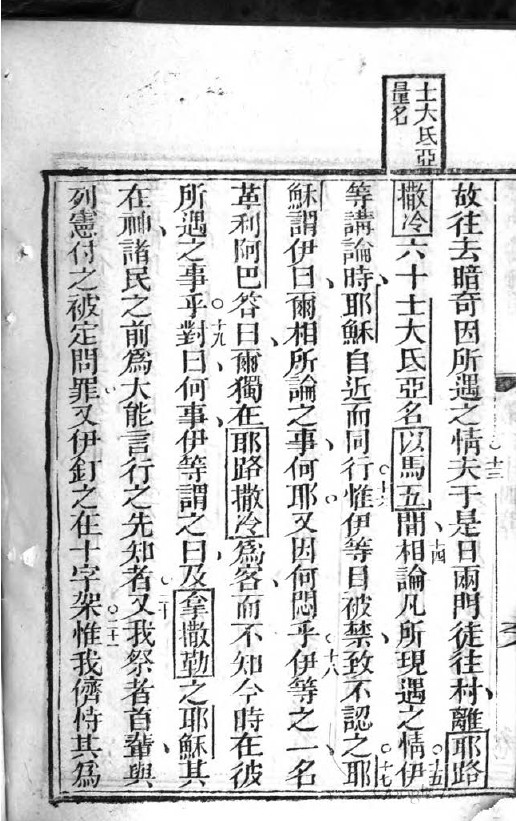 士大氐亞
量名
故往去暗奇因所遇之情夫十三于是日兩門徒往村離耶路
撒冷六十士大氐亞名以馬五十四間相論凡所現遇之情十五伊
等講論時耶穌自近而同行十六惟伊等目被禁致不認之十七耶
穌謂伊曰爾相所論之事何耶又因何悶乎十八伊等之一名
革利阿巴答曰爾獨在耶路撒冷為客而不知今時在彼
所遇之事乎十九對曰何事伊等謂之曰及拿撒勒之耶穌其
在神諸民之前為大能言行之先知者二十又我祭者首輩與
列憲付之被定問罪又伊釘之在十字架二十一惟我儕恃其為